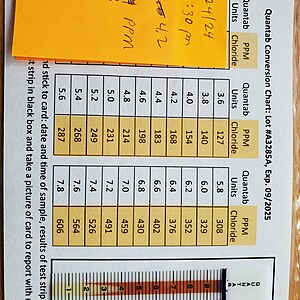 24/24
:30 pm
4.2
PPM
Quantab Conversion Chart Lot #A3285A, Exp. 09/2025
Quantab Units PPM Chloride Quantab Units PPM Chloride Quantab Units PPM Chloride
3.6 127 5.8 308
3.8 140 6.0 329
4.0 154 6.2 352
4.2 168 6.4 376
4.4 183 6.6 402
4.6 198 6.8 430
4.8 214 7.0 459
5.0 231 7.2 491
5.2 249 7.4 526
5.4 268 7.6 564
5.6 287 7.8 606
nd stick to card: date and time of sample, results of test strip
est strip in black box and take a picture of card to report with
QUANTAB